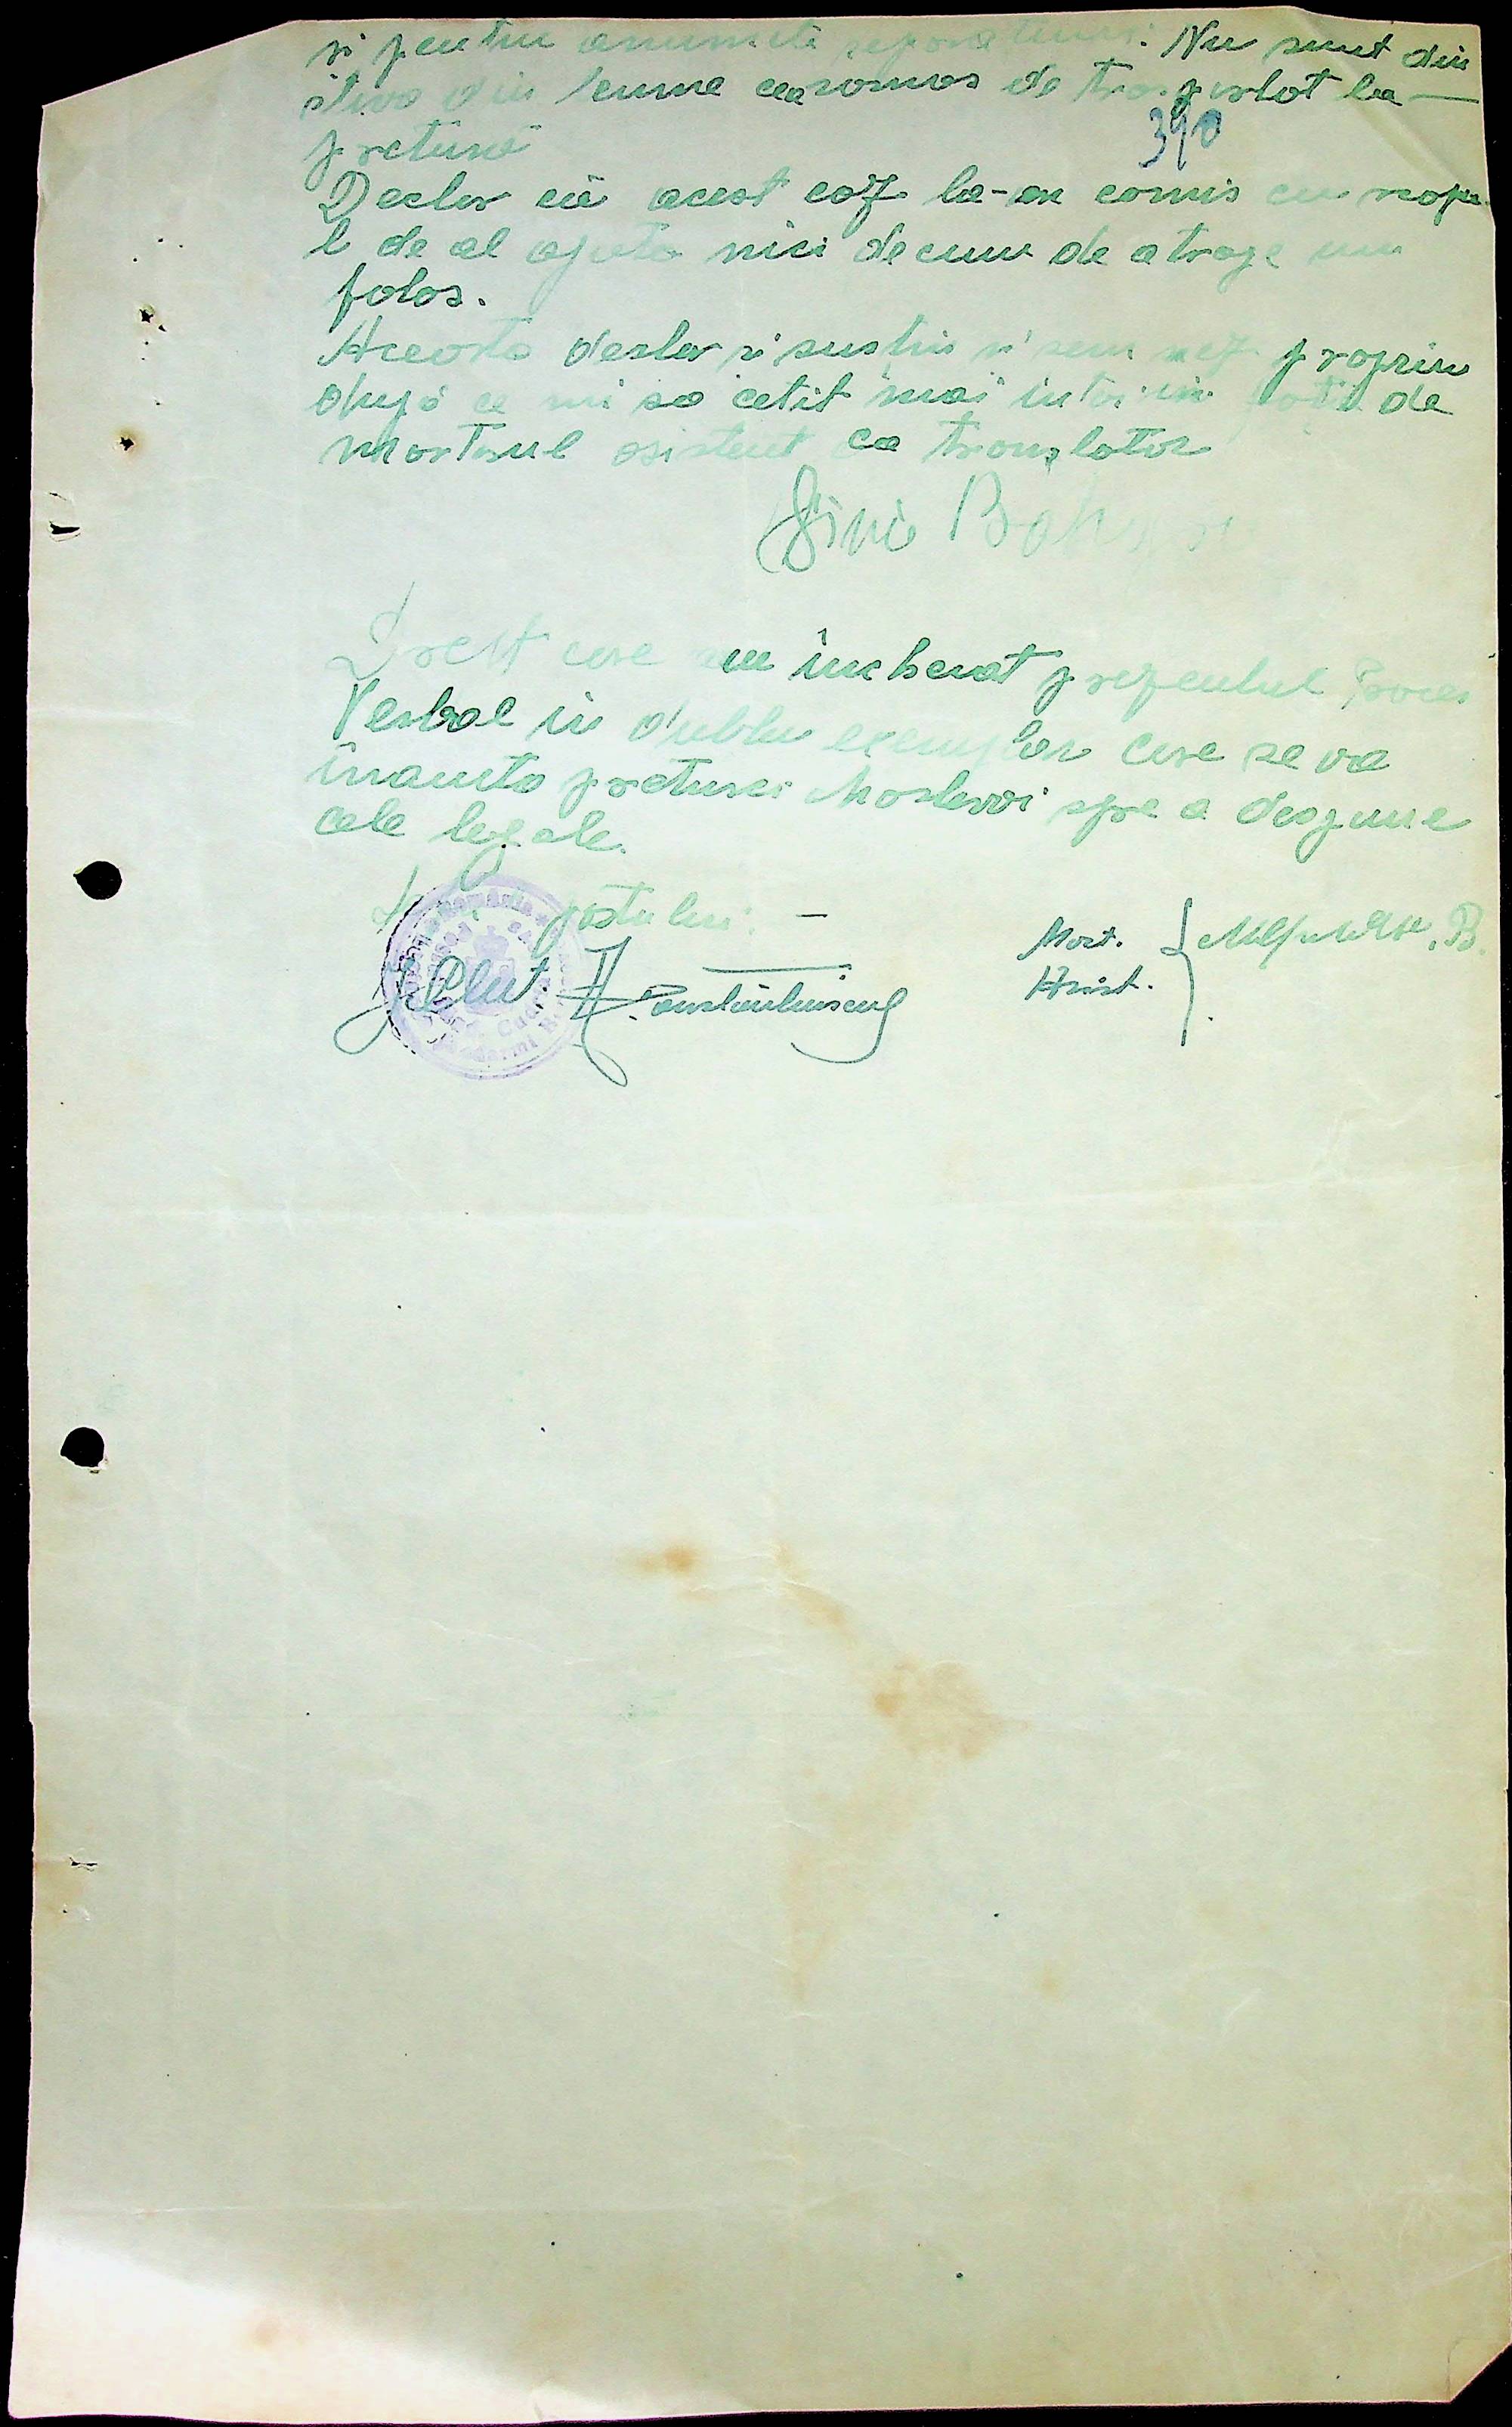 și pentru anumite reparaturi. Nu sunt din
stiva din lemne ce a romas de trasportot la —
pretură
390
Declar că acest caz la-am comis cu scopu-
l de al ajuta nici decum de a trage un
folos.
Aceasta declar și susțin și semnez propriu
după ce mi sa cetit mai intoi in față de
martorul asistent ca translator
Drept care am încheiat prezentul Proces
Verbal in dublu exemplar care se va
înainta preturei spre a dispune
cele legale.
Șeful postului: —
Plut. Constantinescu
Mart.
Asist.